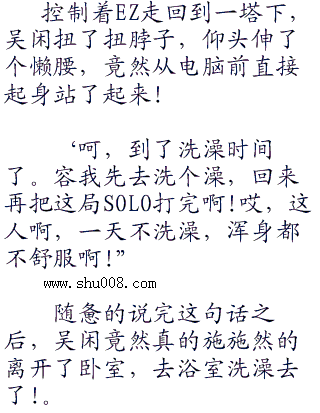 控制着EZ走回到一塔下，
吴闲扭了扭脖子，仰头伸了
个懒腰，竟然从电脑前直接
起身站了起来！
‘呵，到了洗澡时间
了。容我先去洗个澡，回来
再把这局SOLO打完啊！哎，这
人啊，一天不洗澡，浑身都
不舒服啊！”
www.shu008.com
随惫的说完这句话之
后，吴闲竟然真的施施然的
离开了卧室，去浴室洗澡去
了！。